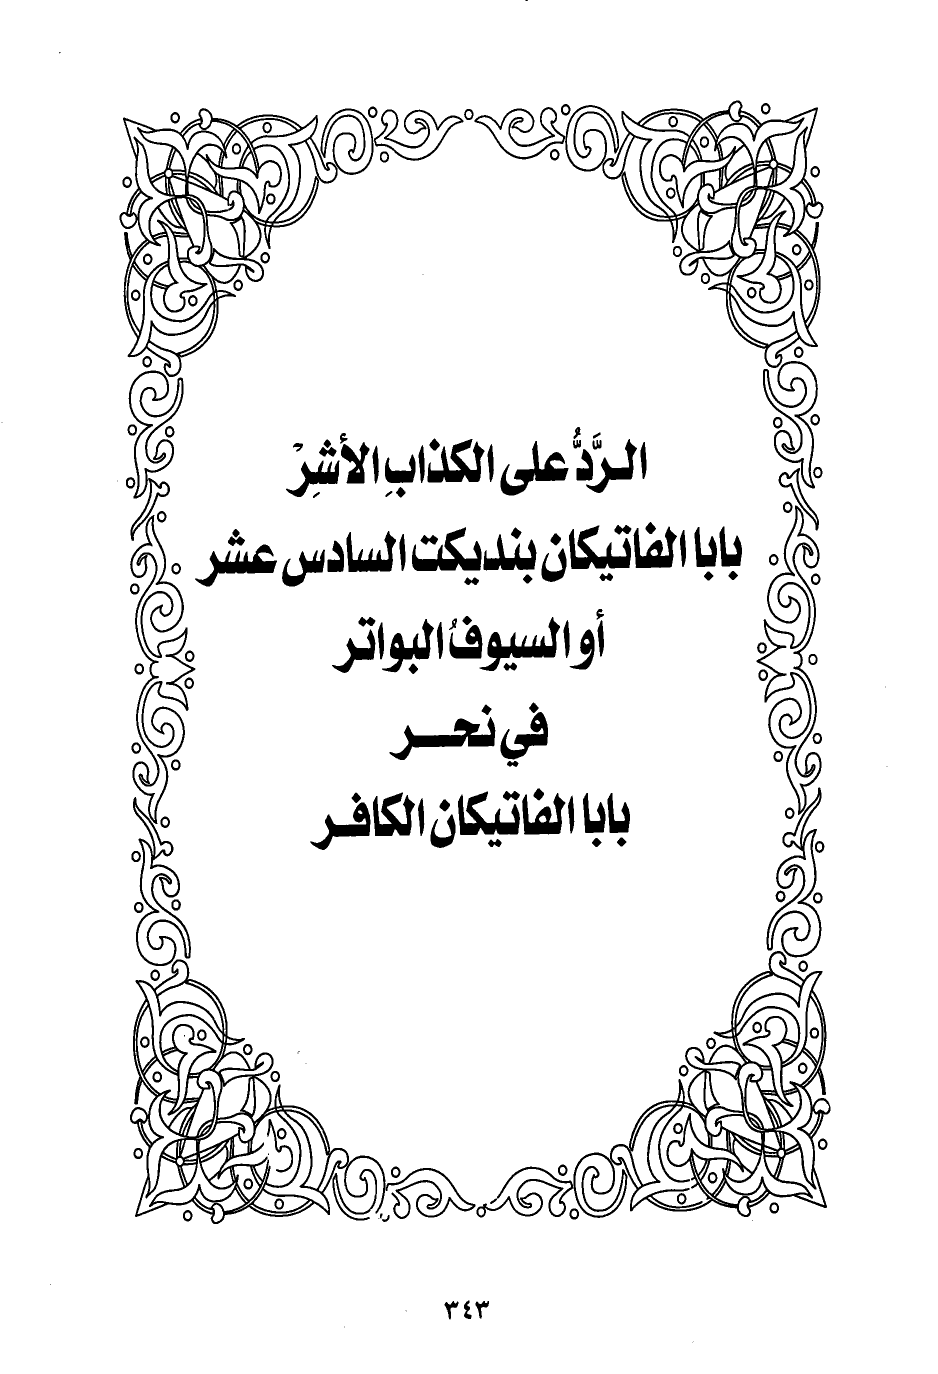 الـرَّدُّ على الكذابِ الأشِرْ
بابا الفاتيكان بنديكت السادس عشر
أو السيوفُ البواتر
في نحـــر
بابا الفاتيكان الكافـر
٣٤٣